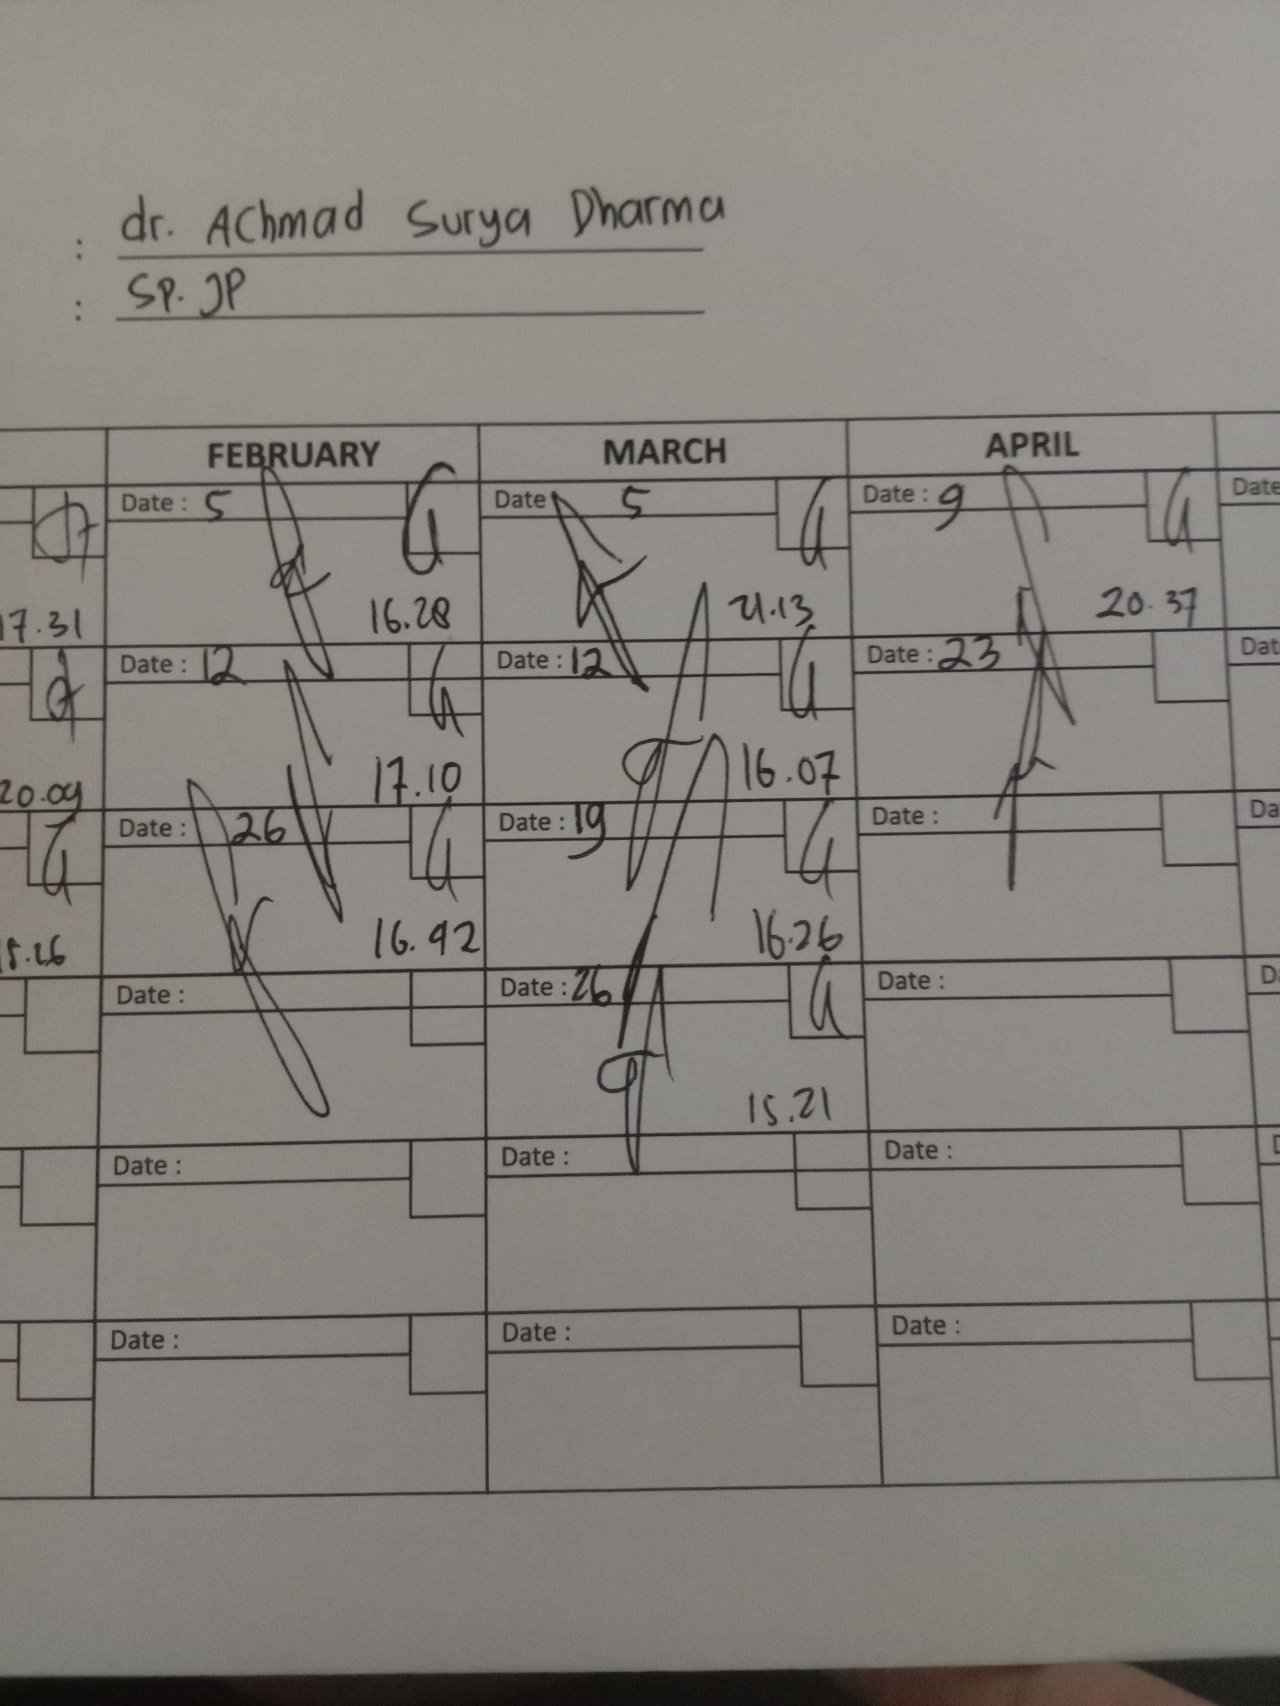 : dr. Achmad Surya Dharma
: Sp. JP
FEBRUARY MARCH APRIL
Date : 5 Date 5 Date : 9 Date
17.31 16.28 21.13 20.37
Date : 12 Date : 12 Date : 23 Dat
20.09 17.10 16.07
Date : 26 Date : 19 Date : Da
16.42 16.26
Date : Date : 26 Date : D
15.21
Date : Date : Date :
Date : Date : Date :